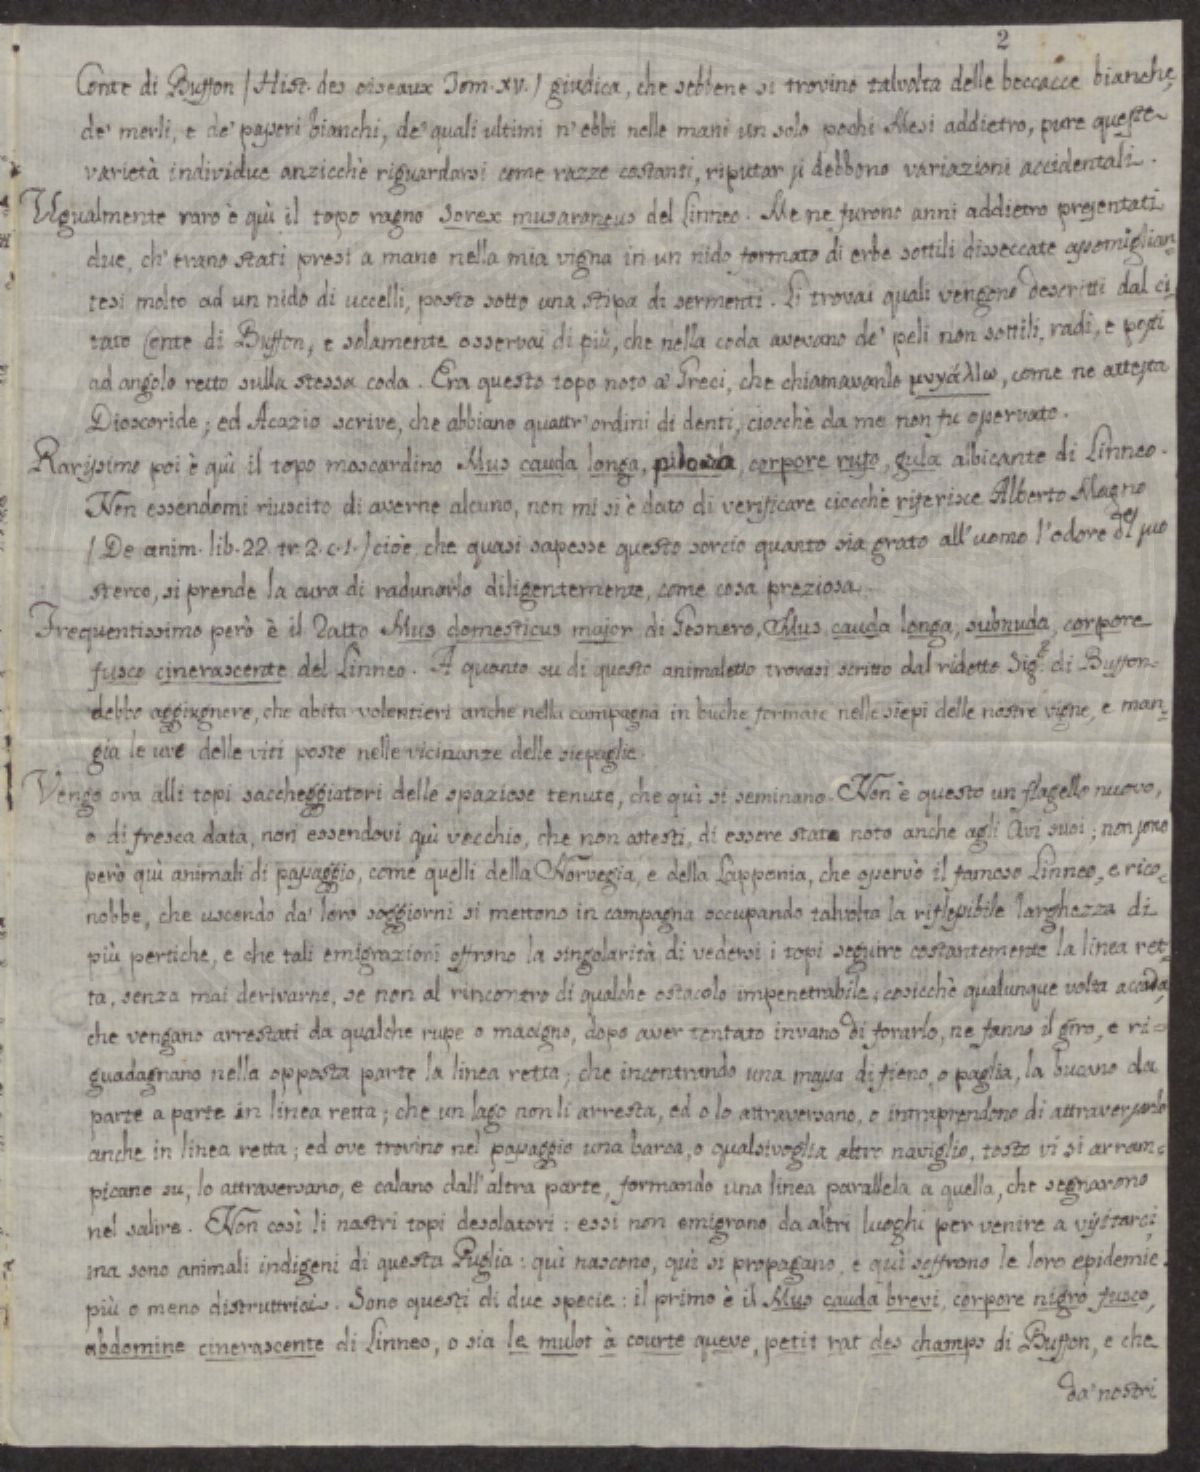 2
Conte di Buffon / Hist. des oiseaux Tom. XV. / giudica, che sebbene si trovino talvolta delle beccacce bianche,
de' merli, e de' passeri bianchi, de' quali ultimi n'ebbi nelle mani un solo pochi Mesi addietro, pure queste
varietà individue anzicchè riguardarsi come razze costanti, riputar si debbono variazioni accidentali.
Ugualmente raro è quì il topo ragno Sorex musaraneus del Linneo. Me ne furono anni addietro presentati
due, ch'erano stati presi a mano nella mia vigna in un nido formato di erbe sottili disseccate assomiglian-
tesi molto ad un nido di uccelli, posto sotto una stipa di sermenti. Li trovai quali vengono descritti dal ci-
tato Conte di Buffon, e solamente osservai di più, che nella coda avevano de' peli non sottili, radi, e posti
ad angolo retto sulla stessa coda. Era questo topo noto a' Greci, che chiamavanlo μυγάλιω, come ne attesta
Dioscoride; ed Acazio scrive, che abbiano quattr'ordini di denti, ciocchè da me non fu osservato.
Rarissimo poi è quì il topo moscardino Mus cauda longa, pilosa, corpore rufo, gula albicante di Linneo.
Non essendomi riuscito di averne alcuno, non mi si è dato di verificare ciocchè riferisce Alberto Magno
/ De anim. lib. 22 tr. 2. c. 1. / cioè, che quasi sapesse questo sorcio quanto sia grato all'uomo l'odore del suo
sterco, si prende la cura di radunarlo diligentemente, come cosa preziosa.
Frequentissimo però è il Ratto Mus domesticus major di Gesnero, Mus cauda longa, subnuda, corpore
fusco cinerascente del Linneo. A quanto su di questo animaletto trovasi scritto dal ridetto Sig.e di Buffon
debbo aggiugnere, che abita volentieri anche nella campagna in buche formate nelle siepi delle nostre vigne, e man-
gia le uve delle viti poste nelle vicinanze delle siepaglie.
Vengo ora alli topi saccheggiatori delle spaziose tenute, che quì si seminano. Non è questo un flagello nuovo,
o di fresca data, non essendovi quì vecchio, che non attesti, di essere stato noto anche agli Avi suoi; non sono
però quì animali di passaggio, come quelli della Norvegia, e della Lapponia, che osservò il famoso Linneo, e rico-
nobbe, che uscendo da' loro soggiorni si mettono in campagna occupando talvolta la riflessibile larghezza di
più pertiche, e che tali emigrazioni offrono la singolarità di vedersi i topi seguire costantemente la linea ret-
ta, senza mai derivarne, se non al rincontro di qualche ostacolo impenetrabile; cosicchè qualunque volta accada,
che vengano arrestati da qualche rupe o macigno, dopo aver tentato invano di forarlo, ne fanno il giro, e ri-
guadagnano nella opposta parte la linea retta; che incontrando una massa di fieno, o paglia, la bucano da
parte a parte in linea retta; che un lago non li arresta, ed o lo attraversano, o intraprendono di attraversarlo
anche in linea retta; ed ove trovino nel passaggio una barca, o qualsivoglia altro naviglio, tosto vi si arram-
picano su, lo attraversano, e calano dall'altra parte, formando una linea parallela a quella, che segnarono
nel salire. Non così li nostri topi desolatori: essi non emigrano da altri luoghi per venire a visitarci,
ma sono animali indigeni di questa Puglia: quì nascono, quì si propagano, e quì soffrono le loro epidemie
più o meno distruttrici. Sono questi di due specie: il primo è il Mus cauda brevi, corpore nigro fusco,
abdomine cinerascente di Linneo, o sia le mulot à courte queve, petit rat des champs di Buffon, e che
da' nostri